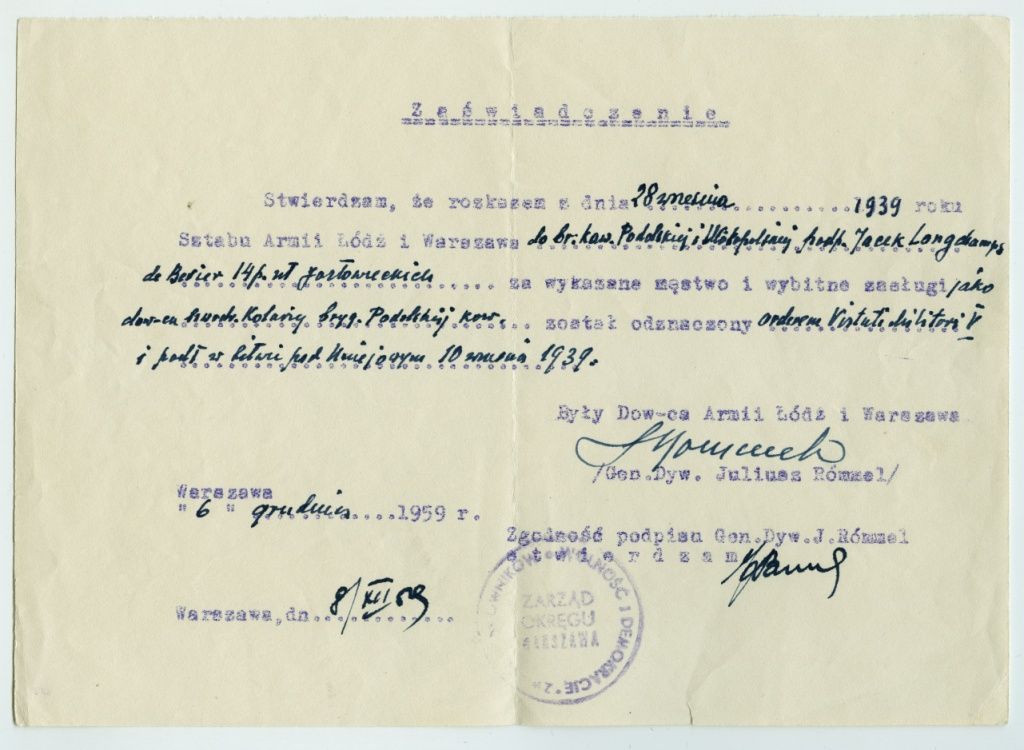 Zaświadczenie
Stwierdzam, że rozkazem z dnia 28 września 1939 roku
Sztabu Armii Łódź i Warszawa do br. kaw. Podolskiej i podp. Jacek Longchamps
de Berier 14 p. uł Jazłowieckich za wykazane męstwo i wybitne zasługi jako
dow-ca Kolarzy bryg. Podolskiej kaw. został odznaczony orderem Virtuti Militari V
i padł w bitwie pod Uniejowym 10 września 1939.
Były Dow-ca Armii Łódź i Warszawa
/Gen.Dyw. Juliusz Rómmel/
Warszawa
" 6 " grudnia 1959 r.
Zgodność podpisu Gen.Dyw.J.Rómmel
stwierdzam
Warszawa, dn. 8/XII 59
WOLNOŚĆ I DEMOKRACJĘ
ZARZĄD
OKRĘGU
WARSZAWA